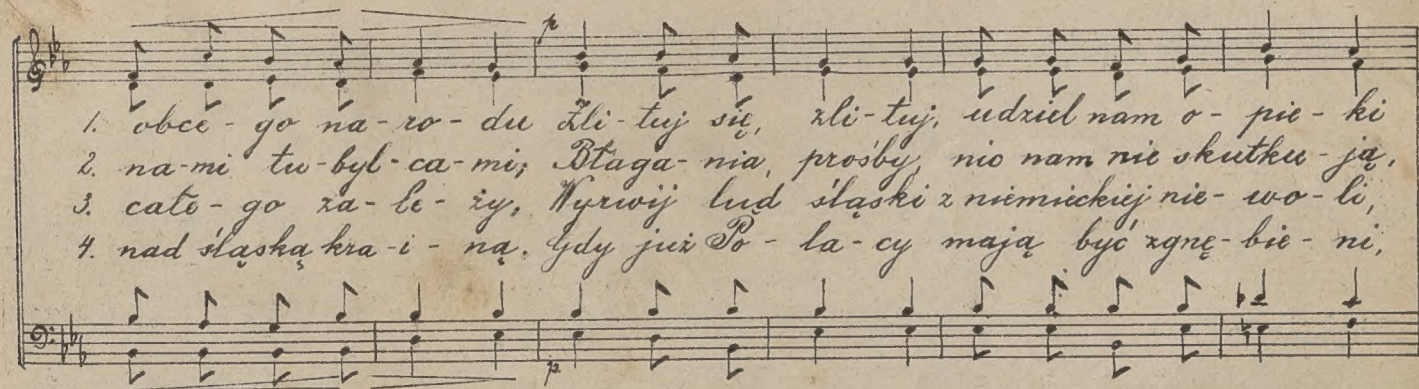 p
1. obce - go na - ro - du Zli - tuj się, zli - tuj, udziel nam o - pie - ki
2. na - mi tu - byl - ca - mi; Błaga - nia, prośby, nic nam nie skutku - ją,
3. całe - go za - le - ży, Wyrwij lud śląski z niemieckiej nie - wo - li,
4. nad śląską kra - i - ną. Gdy już Po - la - cy mają być zgnę - bie - ni,
p